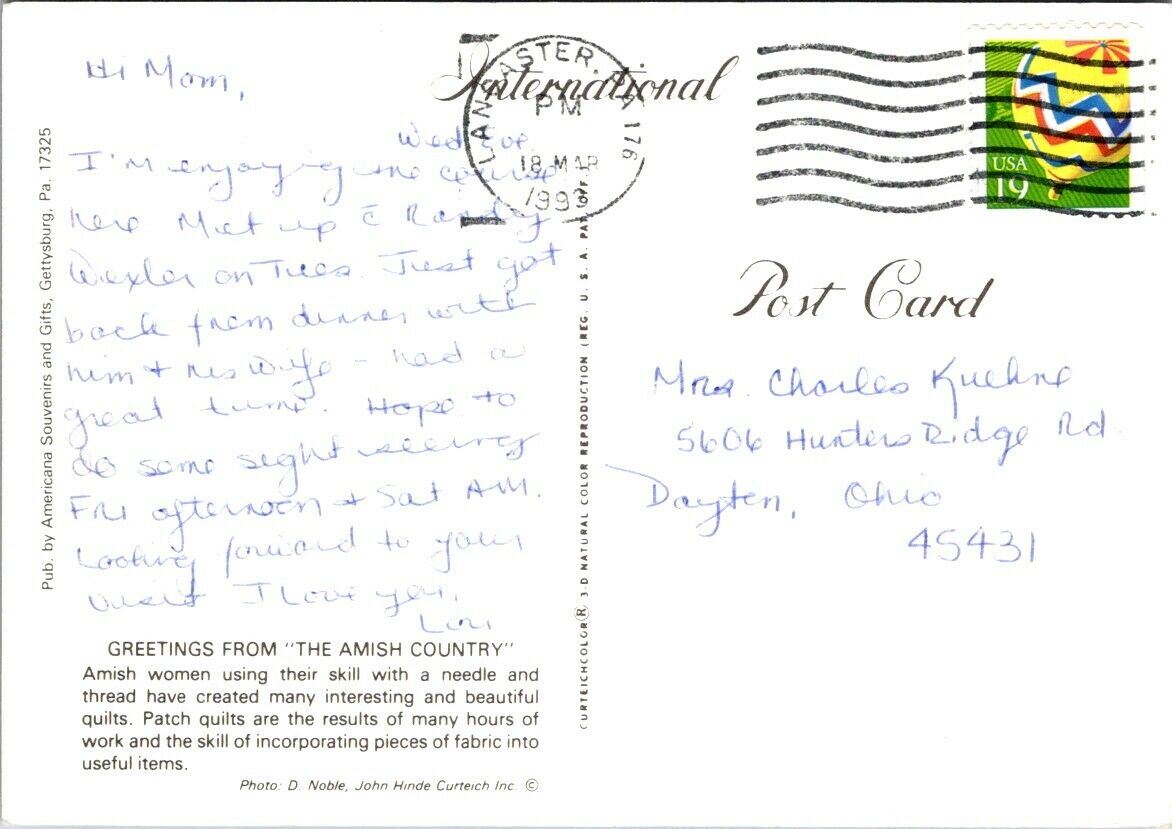 Hi Mom,
Wed Eve.
I'm enjoying the course
here Met up c̄ Randy
Wexler on Tues. Just got
back from dinner with
him + his wife - had a
great time. Hope to
do some sight seeing
Fri afternoon + Sat AM.
Looking forward to your
visit I love you,
Lori
GREETINGS FROM "THE AMISH COUNTRY"
Amish women using their skill with a needle and
thread have created many interesting and beautiful
quilts. Patch quilts are the results of many hours of
work and the skill of incorporating pieces of fabric into
useful items.
Photo: D. Noble, John Hinde Curteich Inc. ©
Pub. by Americana Souvenirs and Gifts, Gettysburg, Pa. 17325
CURTEICHCOLOR® 3-D NATURAL COLOR REPRODUCTION (REG. U. S. A. PAT. OFF.)
International
LANCASTER, PA 176
PM
18 MAR
USA
19
Post Card
Mrs. Charles Kuehne
5606 Hunters Ridge Rd.
Dayton, Ohio
45431